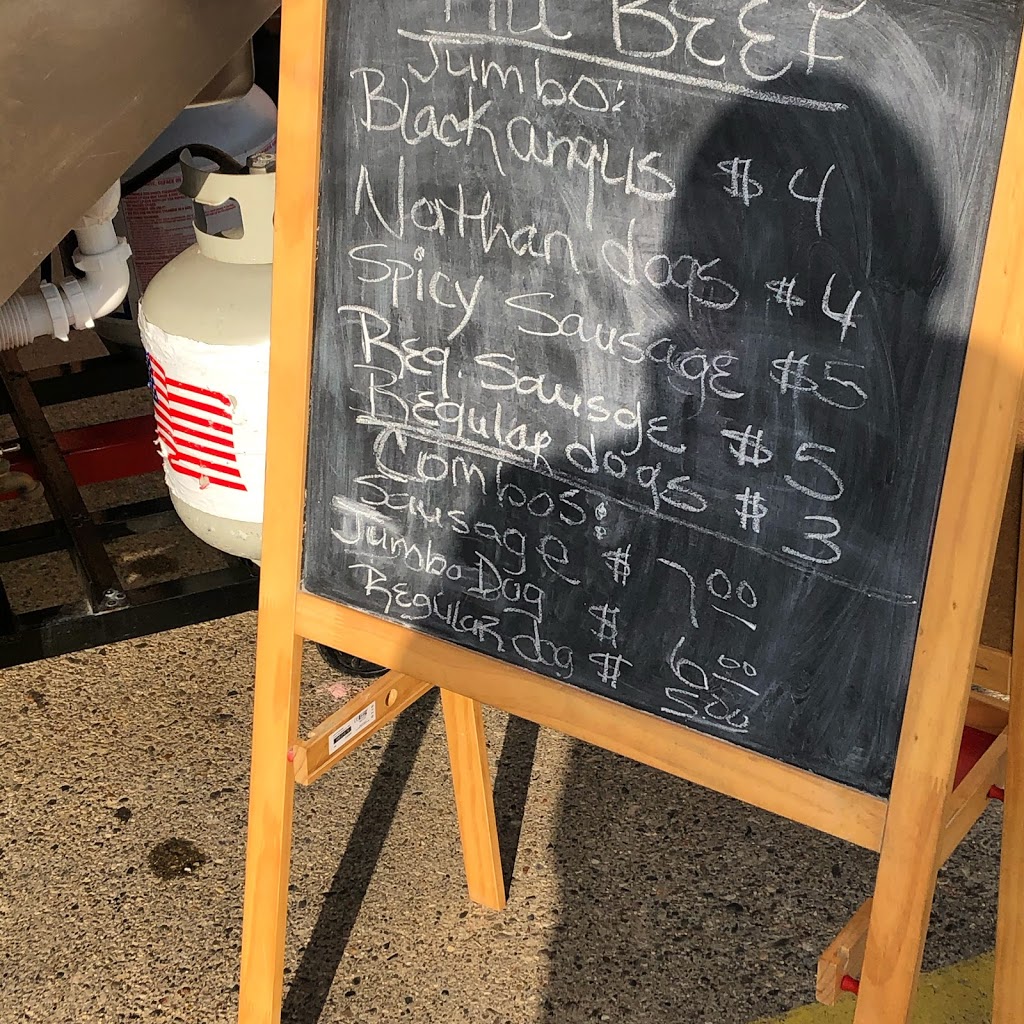 All BEEF
Jumbo:
Black angus $4
Nathan dogs $4
Spicy Sausage $5
Reg. Sausage $5
Regular dogs $3
Combos:
Sausage $7.00
Jumbo Dog $6.00
Regular dog $5.00